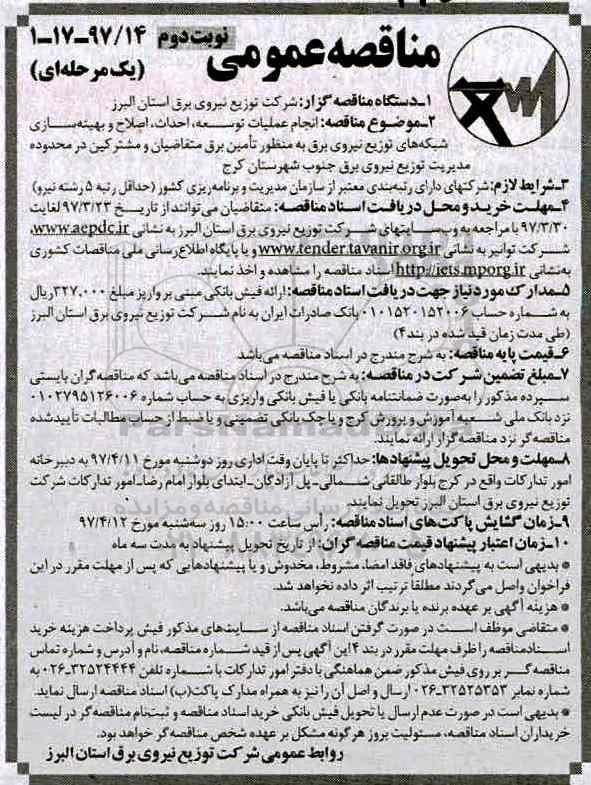 مناقصه عمومی
نوبت دوم
۹۷/۱۴-۱۷-۱
(یک مرحله‌ای)
۱ـ دستگاه مناقصه گزار: شرکت توزیع نیروی برق استان البرز
۲ـ موضوع مناقصه: انجام عملیات توسعه، احداث، اصلاح و بهینه‌سازی
شبکه‌های توزیع نیروی برق به منظور تأمین برق متقاضیان و مشترکین در محدوده
مدیریت توزیع نیروی برق جنوب شهرستان کرج
۳ـ شرایط لازم: شرکتهای دارای رتبه‌بندی معتبر از سازمان مدیریت و برنامه‌ریزی کشور (حداقل رتبه ۵ رشته نیرو)
۴ـ مهلت خرید و محل دریافت اسناد مناقصه: متقاضیان می‌توانند از تاریخ ۹۷/۳/۲۳ لغایت
۹۷/۳/۳۰ با مراجعه به وب‌سایتهای شرکت توزیع نیروی برق استان البرز به نشانی www.aepdc.ir،
شرکت توانیر به نشانی www.tender.tavanir.org.ir و یا پایگاه اطلاع‌رسانی ملی مناقصات کشوری
به‌نشانی http://iets.mporg.ir اسناد مناقصه را مشاهده و اخذ نمایند.
۵ـ مدارک مورد نیاز جهت دریافت اسناد مناقصه: ارائه فیش بانکی مبنی بر واریز مبلغ ۳۲۷،۰۰۰ ریال
به شماره حساب ۰۱۰۱۵۲۰۱۵۲۰۰۶ بانک صادرات ایران به نام شرکت توزیع نیروی برق استان البرز
(طی مدت زمان قید شده در بند ۴)
۶ـ قیمت پایه مناقصه: به شرح مندرج در اسناد مناقصه می‌باشد
۷ـ مبلغ تضمین شرکت در مناقصه: به شرح مندرج در اسناد مناقصه می‌باشد که مناقصه گران بایستی
سپرده مذکور را به‌صورت ضمانتنامه بانکی یا فیش بانکی واریزی به حساب شماره ۰۱۰۲۷۹۵۱۲۶۰۰۶
نزد بانک ملی شعبه آموزش و پرورش کرج و یا چک بانکی تضمینی و یا ضبط از حساب مطالبات تأییدشده
مناقصه‌گر نزد مناقصه گزار ارائه نمایند.
۸ـ مهلت و محل تحویل پیشنهادها: حداکثر تا پایان وقت اداری روز دوشنبه مورخ ۹۷/۴/۱۱ به دبیرخانه
امور تدارکات واقع در کرج بلوار طالقانی شمالی-پل آزادگان-ابتدای بلوار امام رضا-امور تدارکات شرکت
توزیع نیروی برق استان البرز تحویل نمایند.
۹ـ زمان گشایش پاکت‌های اسناد مناقصه: رأس ساعت ۱۵:۰۰ روز سه‌شنبه مورخ ۹۷/۴/۱۲
۱۰ـ زمان اعتبار پیشنهاد قیمت مناقصه گران: از تاریخ تحویل پیشنهاد به مدت سه ماه
* بدیهی است به پیشنهادهای فاقد امضا، مشروط، مخدوش و یا پیشنهادهایی که پس از مهلت مقرر در این
فراخوان واصل می‌گردند مطلقا ترتیب اثر داده نخواهد شد.
* هزینه آگهی بر عهده برنده یا برندگان مناقصه می‌باشد.
* متقاضی موظف است در صورت گرفتن اسناد مناقصه از سایت‌های مذکور فیش پرداخت هزینه خرید
اسناد مناقصه را ظرف مهلت مقرر در بند ۴ این آگهی پس از قید شماره مناقصه، نام و آدرس و شماره تماس
مناقصه‌گر بر روی فیش مذکور ضمن هماهنگی با دفتر امور تدارکات با شماره تلفن ۳۲۵۲۴۴۴۴-۰۲۶ به
شماره نمابر ۳۲۵۲۵۳۵۳-۰۲۶ ارسال و اصل آن را نیز به همراه مدارک پاکت(ب) اسناد مناقصه ارسال نماید.
* بدیهی است در صورت عدم ارسال یا تحویل فیش بانکی خرید اسناد مناقصه و ثبت‌نام مناقصه‌گر در لیست
خریداران اسناد مناقصه، مسئولیت بروز هرگونه مشکل بر عهده شخص مناقصه‌گر خواهد بود.
روابط عمومی شرکت توزیع نیروی برق استان البرز